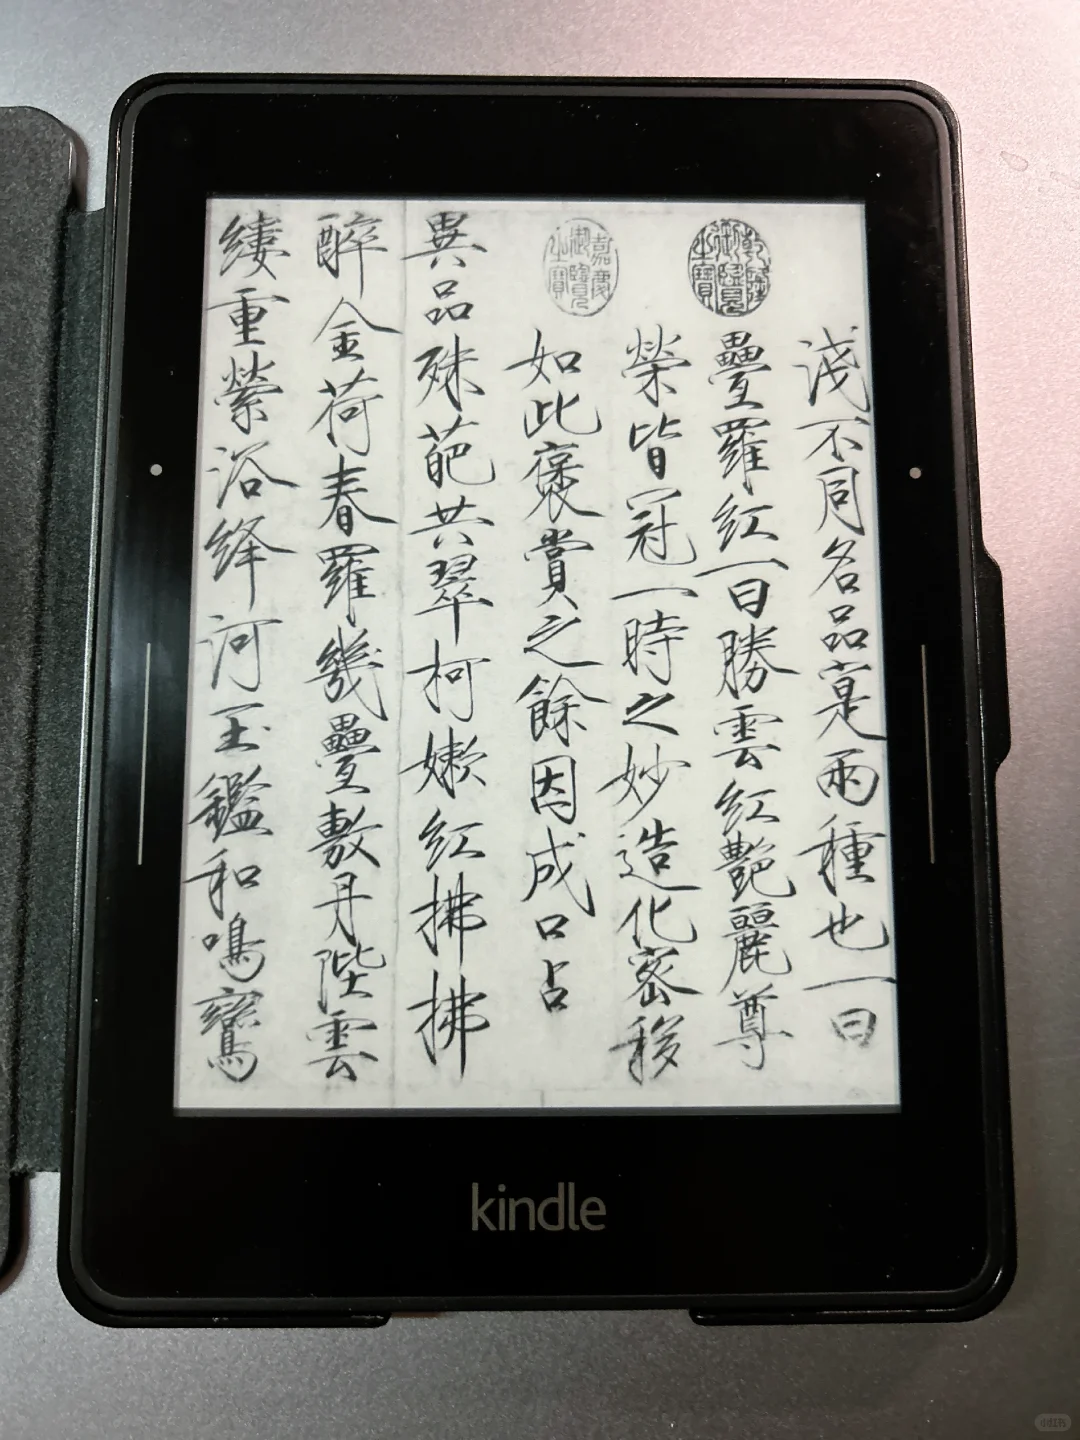 淺不同名品寔兩種也一曰
疊羅紅一曰勝雲紅艷麗尊
榮皆冠一時之妙造化密移
如此褒賞之餘因成口占
異品殊葩共翠柯嫩紅拂拂
醉金荷春羅幾疊敷丹陛雲
縷重縈浴絳河玉鑑和鳴鸞
乾隆御覽之寶
嘉慶御覽之寶
kindle
小红书